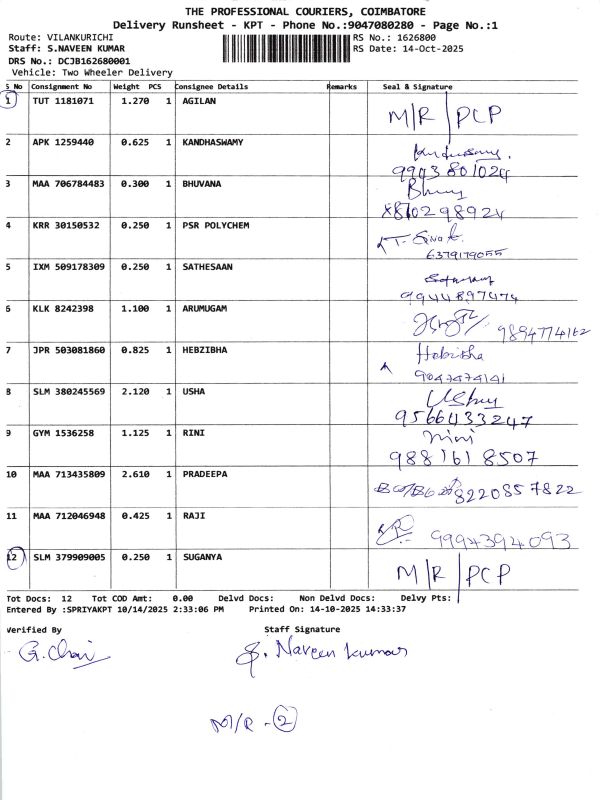 THE PROFESSIONAL COURIERS, COIMBATORE
Delivery Runsheet - KPT - Phone No.:9047080280 - Page No.:1
Route: VILANKURICHI RS No.: 1626800
Staff: S.NAVEEN KUMAR RS Date: 14-Oct-2025
DRS No.: DCJB162680001
Vehicle: Two Wheeler Delivery
S No Consignment No Weight PCS Consignee Details Remarks Seal & Signature
1 TUT 1181071 1.270 1 AGILAN M/R/PCP
2 APK 1259440 0.625 1 KANDHASWAMY
9943801024
3 MAA 706784483 0.300 1 BHUVANA Bhuv
810298924
4 KRR 30150532 0.250 1 PSR POLYCHEM
6379179055
5 IXM 509178309 0.250 1 SATHESAAN
9944897474
6 KLK 8242398 1.100 1 ARUMUGAM 9894774162
7 JPR 503081860 0.825 1 HEBZIBHA Hebzibha
9047474141
8 SLM 380245569 2.120 1 USHA
9566433247
9 GYM 1536258 1.125 1 RINI rini
9881618507
10 MAA 713435809 2.610 1 PRADEEPA 8220857822
11 MAA 712046948 0.425 1 RAJI 9994394093
12 SLM 379909005 0.250 1 SUGANYA M/R/PCP
Tot Docs: 12 Tot COD Amt: 0.00 Delvd Docs: Non Delvd Docs: Delvy Pts:
Entered By :SPRIYAKPT 10/14/2025 2:33:06 PM Printed On: 14-10-2025 14:33:37
Verified By Staff Signature
G. Chai S. Naveen kumar
M/R - 2